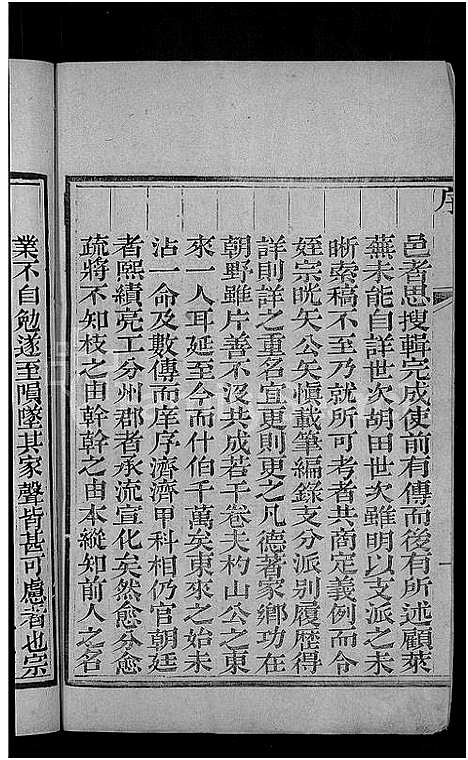 序
邑者思搜輯完成使前有傳而後有所述顧萊
蕪未能自詳世次胡田世次雖明以支派之未
晰索稿不至乃就所可考者共商定義例而令
姪宗晄矢公矢慎載筆編錄支分派別履歷得
詳則詳之重名宜更則更之凡德著家鄉功在
朝野雖片善不沒共成若干卷夫杓山公之東
來一人耳延至今而什伯千萬矣東來之始未
沾一命及數傳而庠序濟濟甲科相仍官朝廷
者熙績亮工分州郡者承流宣化矣然愈分愈
疏將不知枝之由幹幹之由本縱知前人之名
業不自勉遂至隕墜其家聲皆甚可慮者也宗